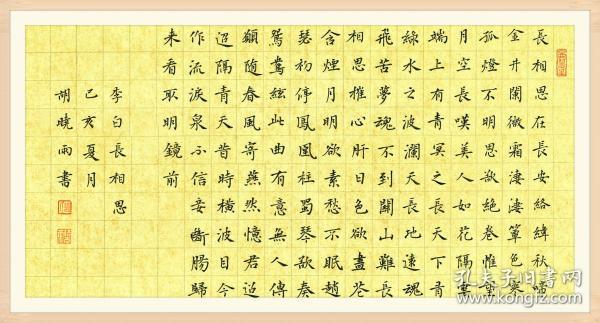 長相思在長安絡緯秋啼
金井闌微霜淒淒簟色寒
孤燈不明思欲絕卷帷望
月空長嘆美人如花隔雲
端上有青冥之長天下有
綠水之波瀾天長地遠魂
飛苦夢魂不到關山難長
相思摧心肝日色欲盡花
含煙月明欲素愁不眠趙
瑟初停鳳凰柱蜀琴欲奏
鴛鴦絃此曲有意無人傳
願隨春風寄燕然憶君迢
迢隔青天昔時橫波目今
作流淚泉不信妾斷腸歸
來看取明鏡前
李白長相思
己亥夏月
胡曉雨書
孔夫子旧书网
www.kongfz.com